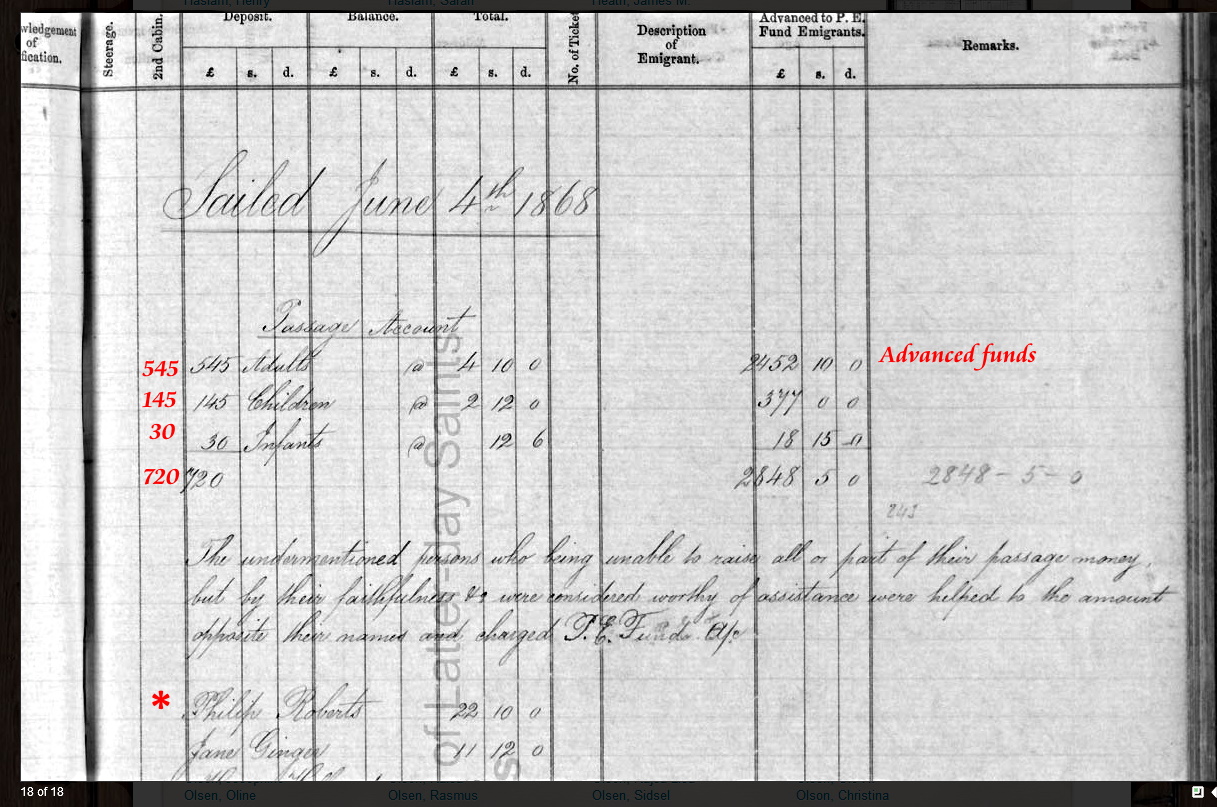 Haslam, Henry Haslam, Sarah Heath, James M.
wledgement
of
fication.
Steerage.
2nd Cabin.
Deposit. Balance. Total.
No. of Ticket
Description
of
Emigrant.
Advanced to P. E.
Fund Emigrants.
Remarks.
£ s. d. £ s. d. £ s. d. £ s. d.
Sailed June 4th 1868
Passage Account
545 545 Adults @ 4 10 0 2452 10 0 Advanced funds
145 145 Children @ 2 12 0 377 0 0
30 30 Infants @ 12 6 18 15 0
720 720 2848 5 0 2848 - 5 - 0
243
The undermentioned persons who being unable to raise all or part of their passage money,
but by their faithfulness &c were considered worthy of assistance were helped to the amount
opposite their names and charged P. E. Funds a/c
* Philip Roberts 22 10 0
Jane Ginger 11 12 0
of Latter-day Saints
18 of 18
Olsen, Oline Olsen, Rasmus Olsen, Sidsel Olson, Christina